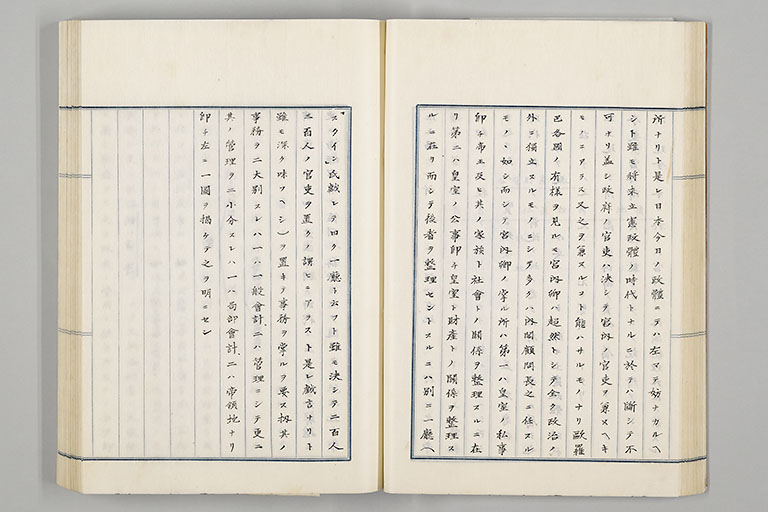 所ナリト是レ日本今日ノ政體ニテハ左マテ妨ナカルヘ
シト雖モ將来立憲政體ノ時代トナルニ於テハ斷シテ不
可ナリ蓋シ政府ノ官吏ハ決シテ宮内ノ官吏ヲ兼スヘキ
モノニアラス又之ヲ兼スルコト能ハサルモノナリ歐羅
巴各國ノ有様ヲ見ルモ宮内卿ハ超然トシテ全ク政治ノ
外ニ獨立スルモノニシテ多クハ内閣顧問長之ニ任スル
モノヽ如シ而シテ宮内卿ノ掌ル所ハ第一ハ皇室ノ私事
即チ帝王及ヒ其ノ家族ト社會トノ關係ヲ整理スルニ在
リ第二ハ皇室ノ公事即チ皇室ト財産トノ關係ヲ整理ス
ルニ在リ而シテ後者ヲ整理セントスルニハ別ニ一廳（
スタイン氏戯レテ曰ク一廳ト云フト雖モ決シテ二百人
三百人ノ官吏ヲ置クノ謂ヒニアラスト是レ戯言ナリト
雖モ深ク味フヘシ）ヲ置キテ事務ヲ掌ルヲ要ス扨其ノ
事務ヲ二大別スレハ一ハ一般會計二ハ管理ニシテ更ニ
其ノ管理ヲ二小分スレハ一ハ局部會計二ハ帝領地ナリ
即チ左ニ一圖ヲ揭ケテ之ヲ明ニセン